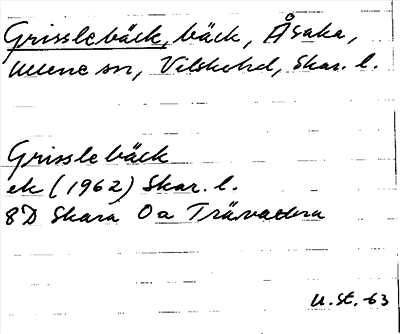 Grisslebäck, bäck, Åsaka,
sn, Vilske hd, Skar. l.
Grisslebäck
ek (1962) Skar. l.
8D Skara 0a Trävattna
U. St. -63